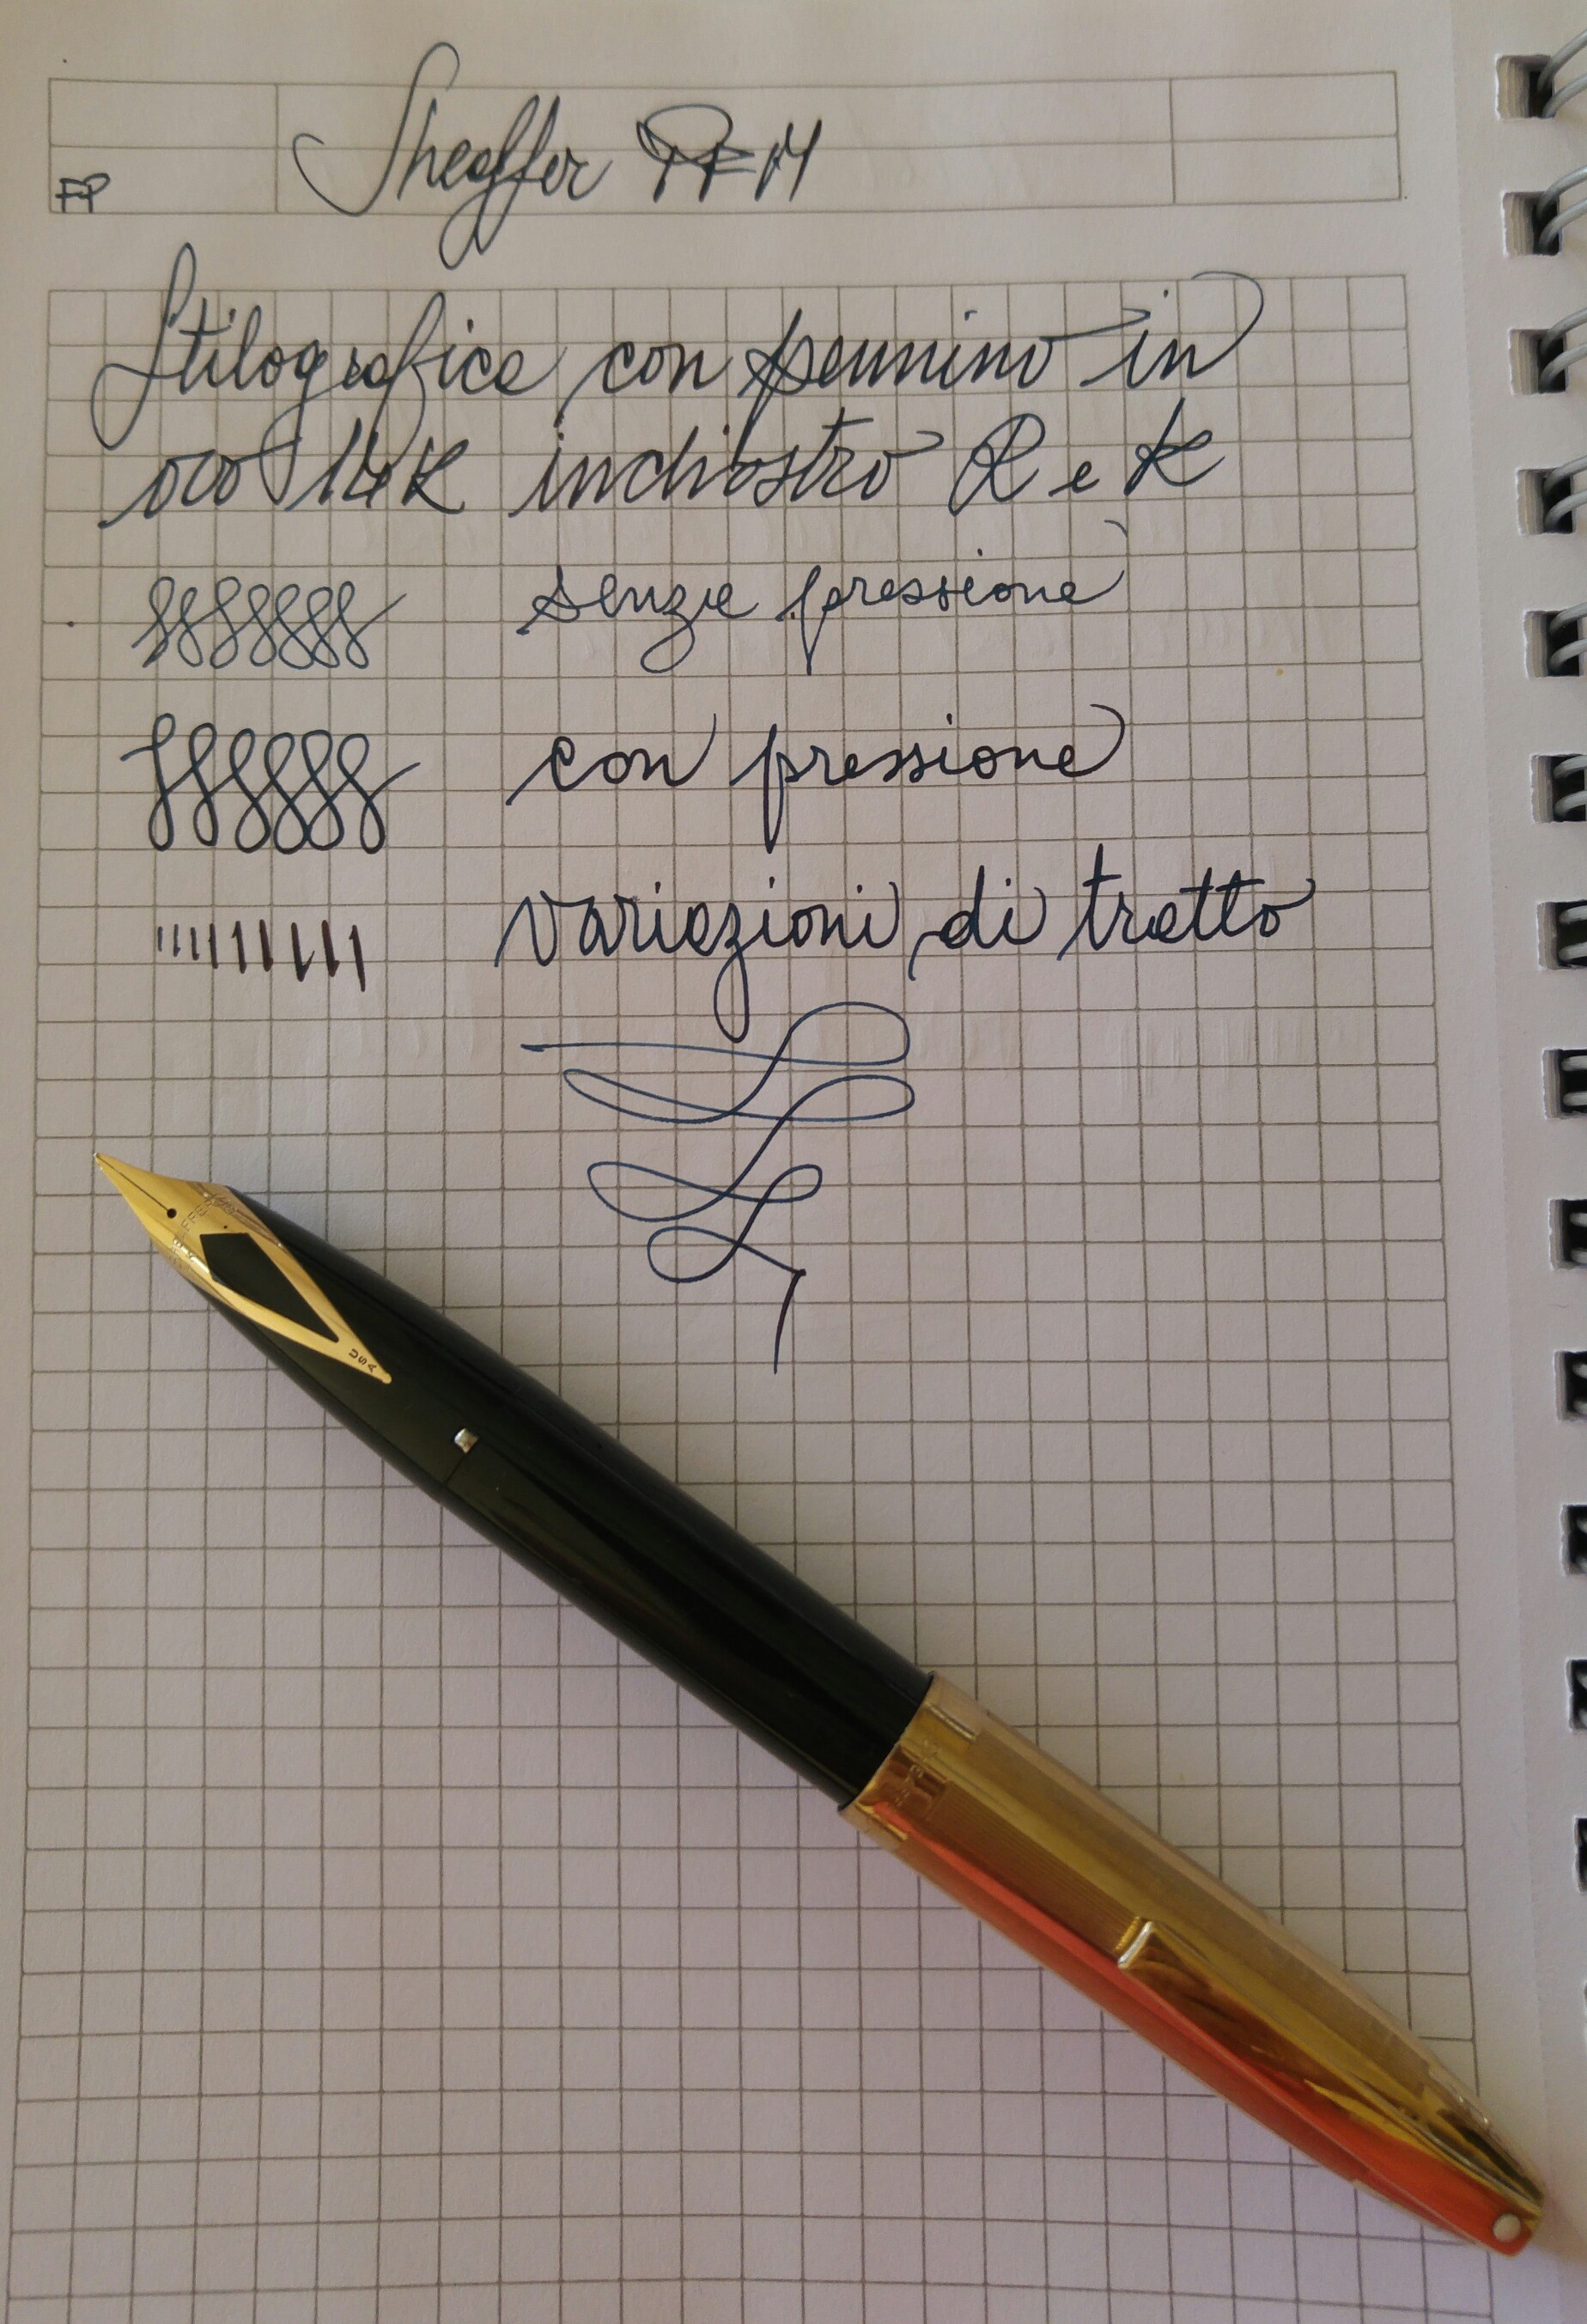 Sheaffer PFM
FP
Stilografica con pennino in
oro 14K inchiostro R e K
senza pressione
con pressione
variazioni di tratto
SHEAFFER'S
USA